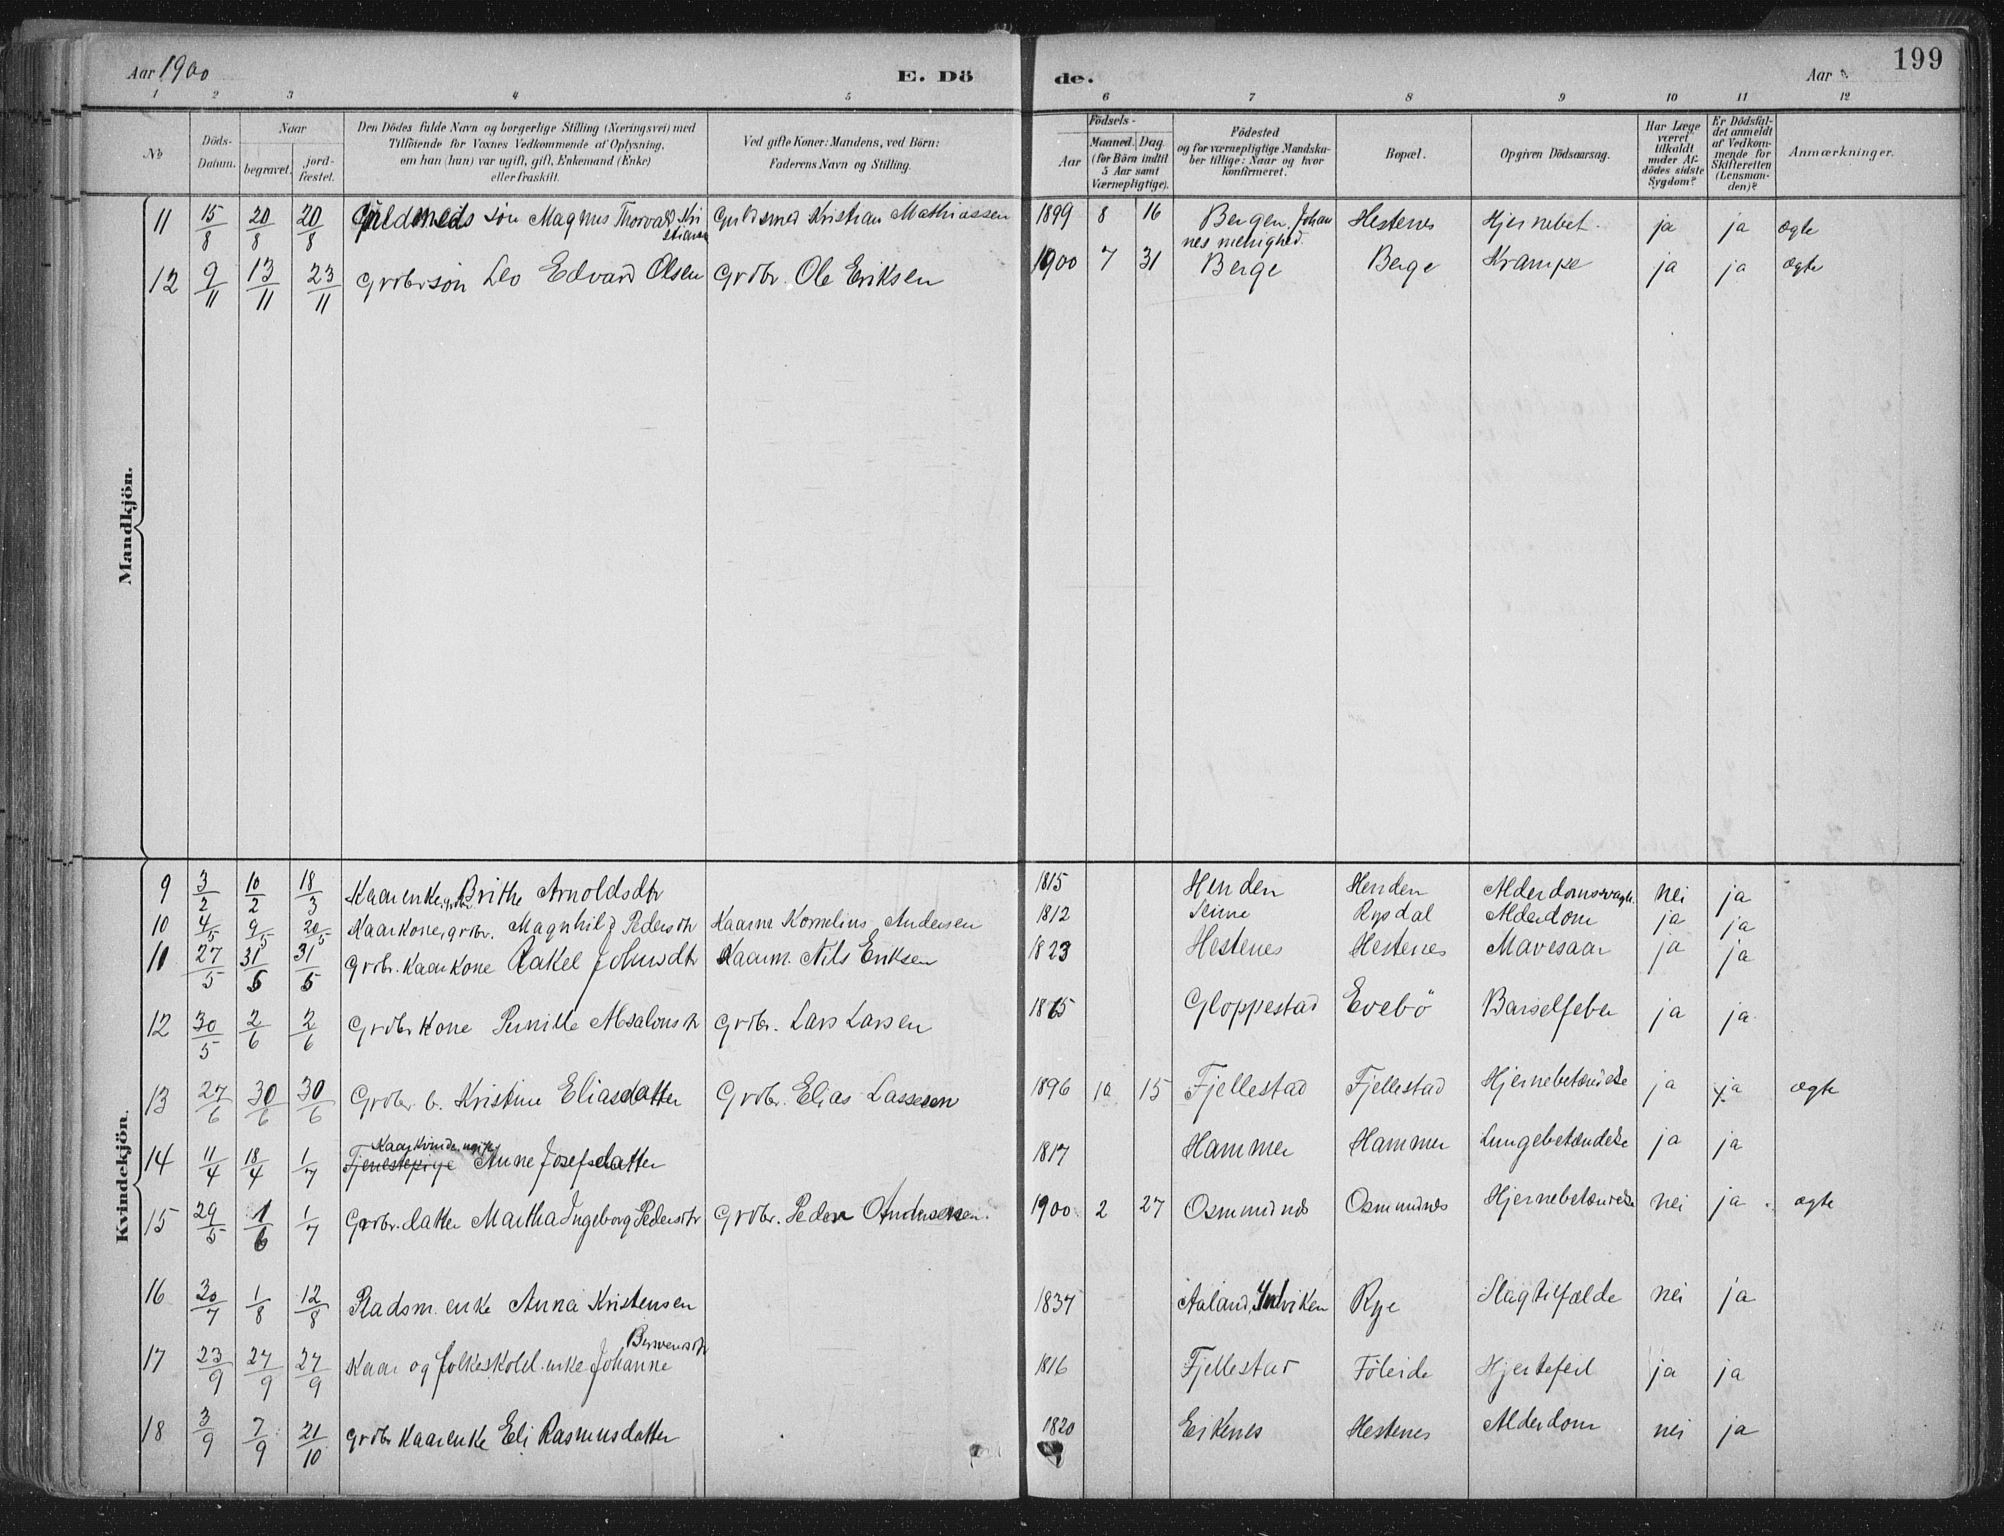 Aar 1900 E. Döde. Aar 199
1 2 3 4 5 6 7 8 9 10 11 12
No Döds-Datum. Naar begravet. jordfæstet. Den Dödes fulde Navn og borgerlige Stilling (Næringsvei) med Tilföiende for Voxnes Vedkommende af Oplysning, om han (hun) var ugift, gift, Enkemand (Enke) eller fraskilt. Ved gifte Koner: Mandens, ved Börn: Faderens Navn og Stilling. Födsels- Aar Maaned. Dag. (for Börn indtil 5 Aar samt Værnepligtige). Födested og for værnepligtige Mandskaber tillige: Naar og hvor konfirmeret. Bopæl. Opgiven Dödsaarsag. Har Læge været tilkaldt under Afdödes sidste Sygdom? Er Dödsfaldet anmeldt af Vedkommende for Skifteretten (Lensmanden)? Anmærkninger.
Mandkjön.
11 15/8 20/8 20/8 Guldsmeds sön Magnus Thorvald Kristiansen Guldsmed Kristian Mathiassen 1899 8 16 Bergen, Johannes menighed. Hestenes Hjernebet. ja ja ægte
12 9/11 13/11 23/11 Grdbr sön Leo Edvard Olsen Grdbr. Ole Eriksen 1900 7 31 Berge Berge Krampe ja ja ægte
Kvindekjön.
9 3/2 10/2 18/3 Kaarenke, grdbr. Brithe Arnoldsdtr 1815 Henden Henden Alderdomssvagh. nei ja
10 4/5 9/5 20/5 Kaarkone, grdbr. Magnhild Pedersdtr Kaarm Kornelius Andersen 1812 Rygdal Alderdom ja ja
10 27/5 31/5 31/5 Grdbr. Kaarkone Rakel Johnsdtr Kaarm. Nils Eriksen 1823 Hestenes Hestenes Mavesaar ja ja
12 30/5 2/6 2/6 Grdbr Kone Pernille Absalonsdtr Grdbr. Lars Larsen 1865 Gloppestad Evebö Barselfeber ja ja
13 27/6 30/6 30/6 Grdbr. b. Kristine Eliasdatter Grdbr. Elias Lassesen 1896 10 15 Fjellestad Fjellestad Hjernebetændelse ja ja ægte
14 11/4 18/4 1/7 Tjenestepige Kaarkvinde, ugift Anne Josefsdatter 1817 Hammer Hammer Lungebetændelse ja ja
15 29/5 1/6 1/7 Grdbr. datter Martha Ingeborg Pedersdtr Grdbr. Peder Andersen. 1900 2 27 Osmundnes Osmundnes Hjernebetændelse nei ja ægte
16 30/7 1/8 12/8 Pladsm. enke Anna Kristensen 1837 Aaland, Indviken Rye Slagtilfælde nei ja
17 23/9 27/9 27/9 Kaar og folkeskolel. enke Johanne 1816 Fjellestad Föleide Hjertefeil ja ja
18 3/9 7/9 21/10 Grdbr Kaarenke Eli Rasmusdatter 1820 Eikenes Hestenes Alderdom nei ja